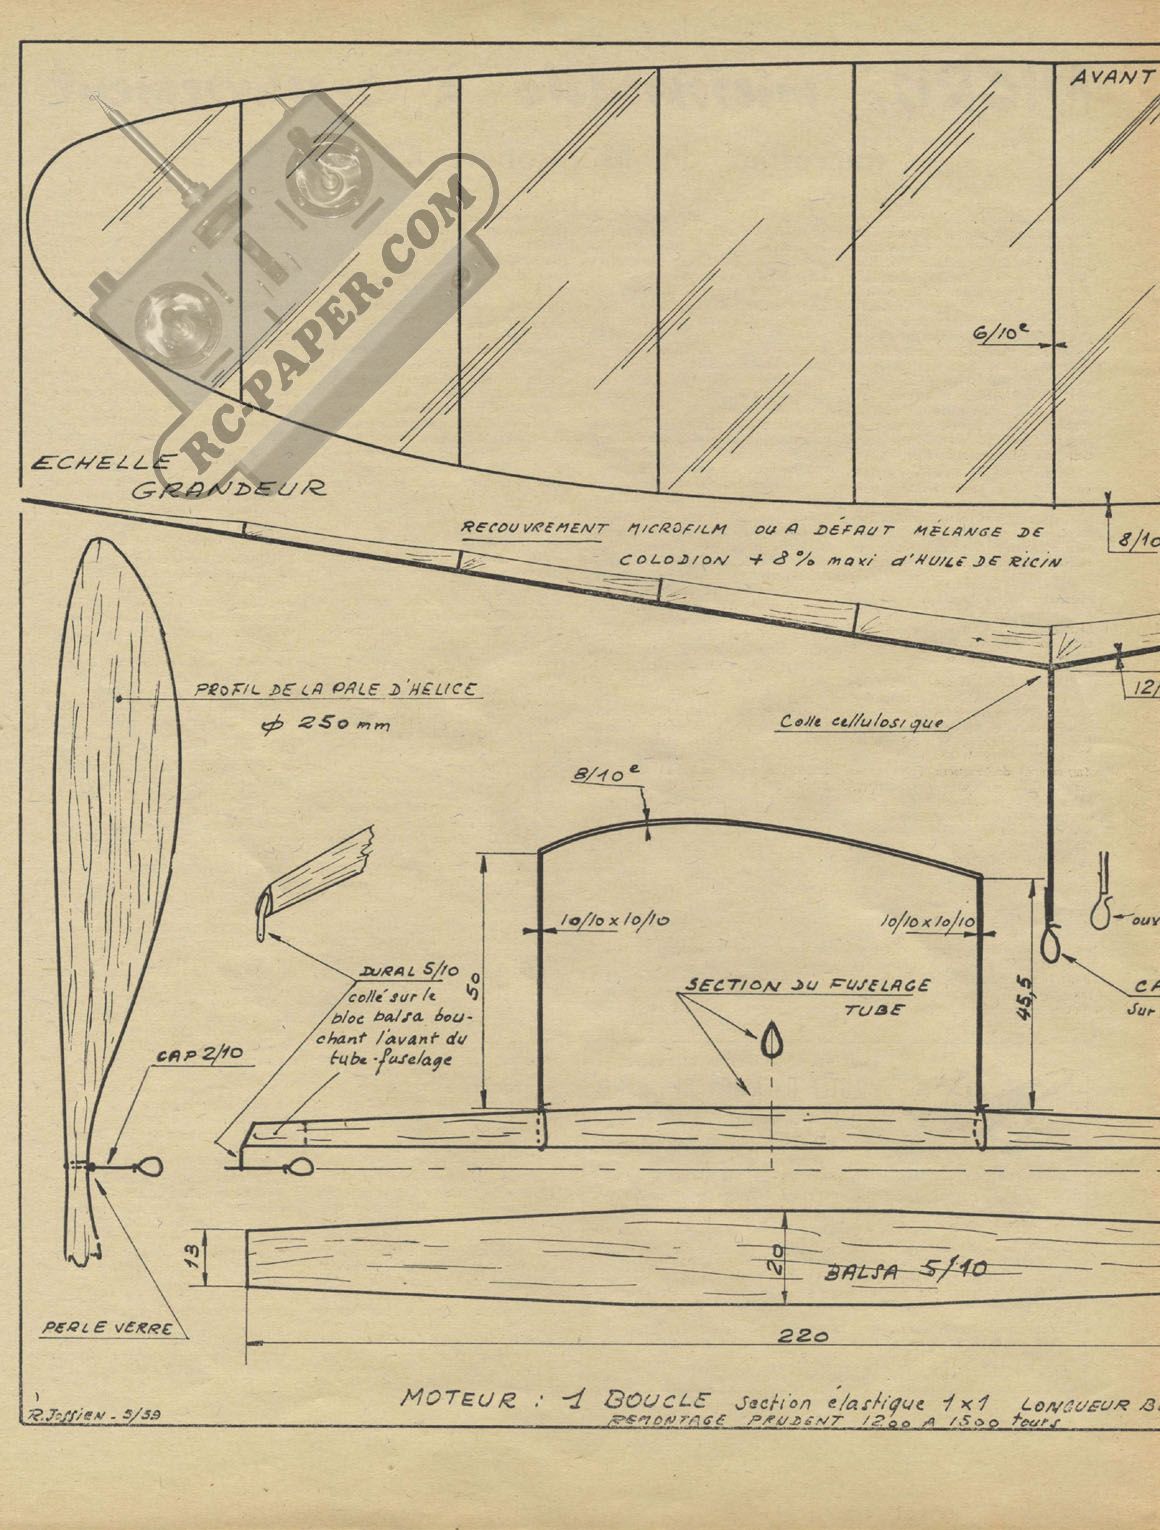 AVANT
RC-PAPER.COM
6/10e
ECHELLE
GRANDEUR
RECOUVREMENT MICROFILM OU A DÉFAUT MÉLANGE DE
COLODION + 8% maxi d'HUILE DE RICIN
8/10
PROFIL DE LA PALE D'HELICE
ϕ 250 mm
12/
Colle cellulosique
8/10e
10/10x10/10
10/10x10/10
ouv
DURAL 5/10
collé sur le
bloc balsa bou-
chant l'avant du
tube-fuselage
50
SECTION DU FUSELAGE
TUBE
45,5
CA
Sur
CAP 2/10
13
20
BALSA 5/10
PERLE VERRE
220
MOTEUR : 1 BOUCLE Section élastique 1x1 LONGUEUR
REMONTAGE PRUDENT 1200 A 1500 tours
R. Jossien - 5/59